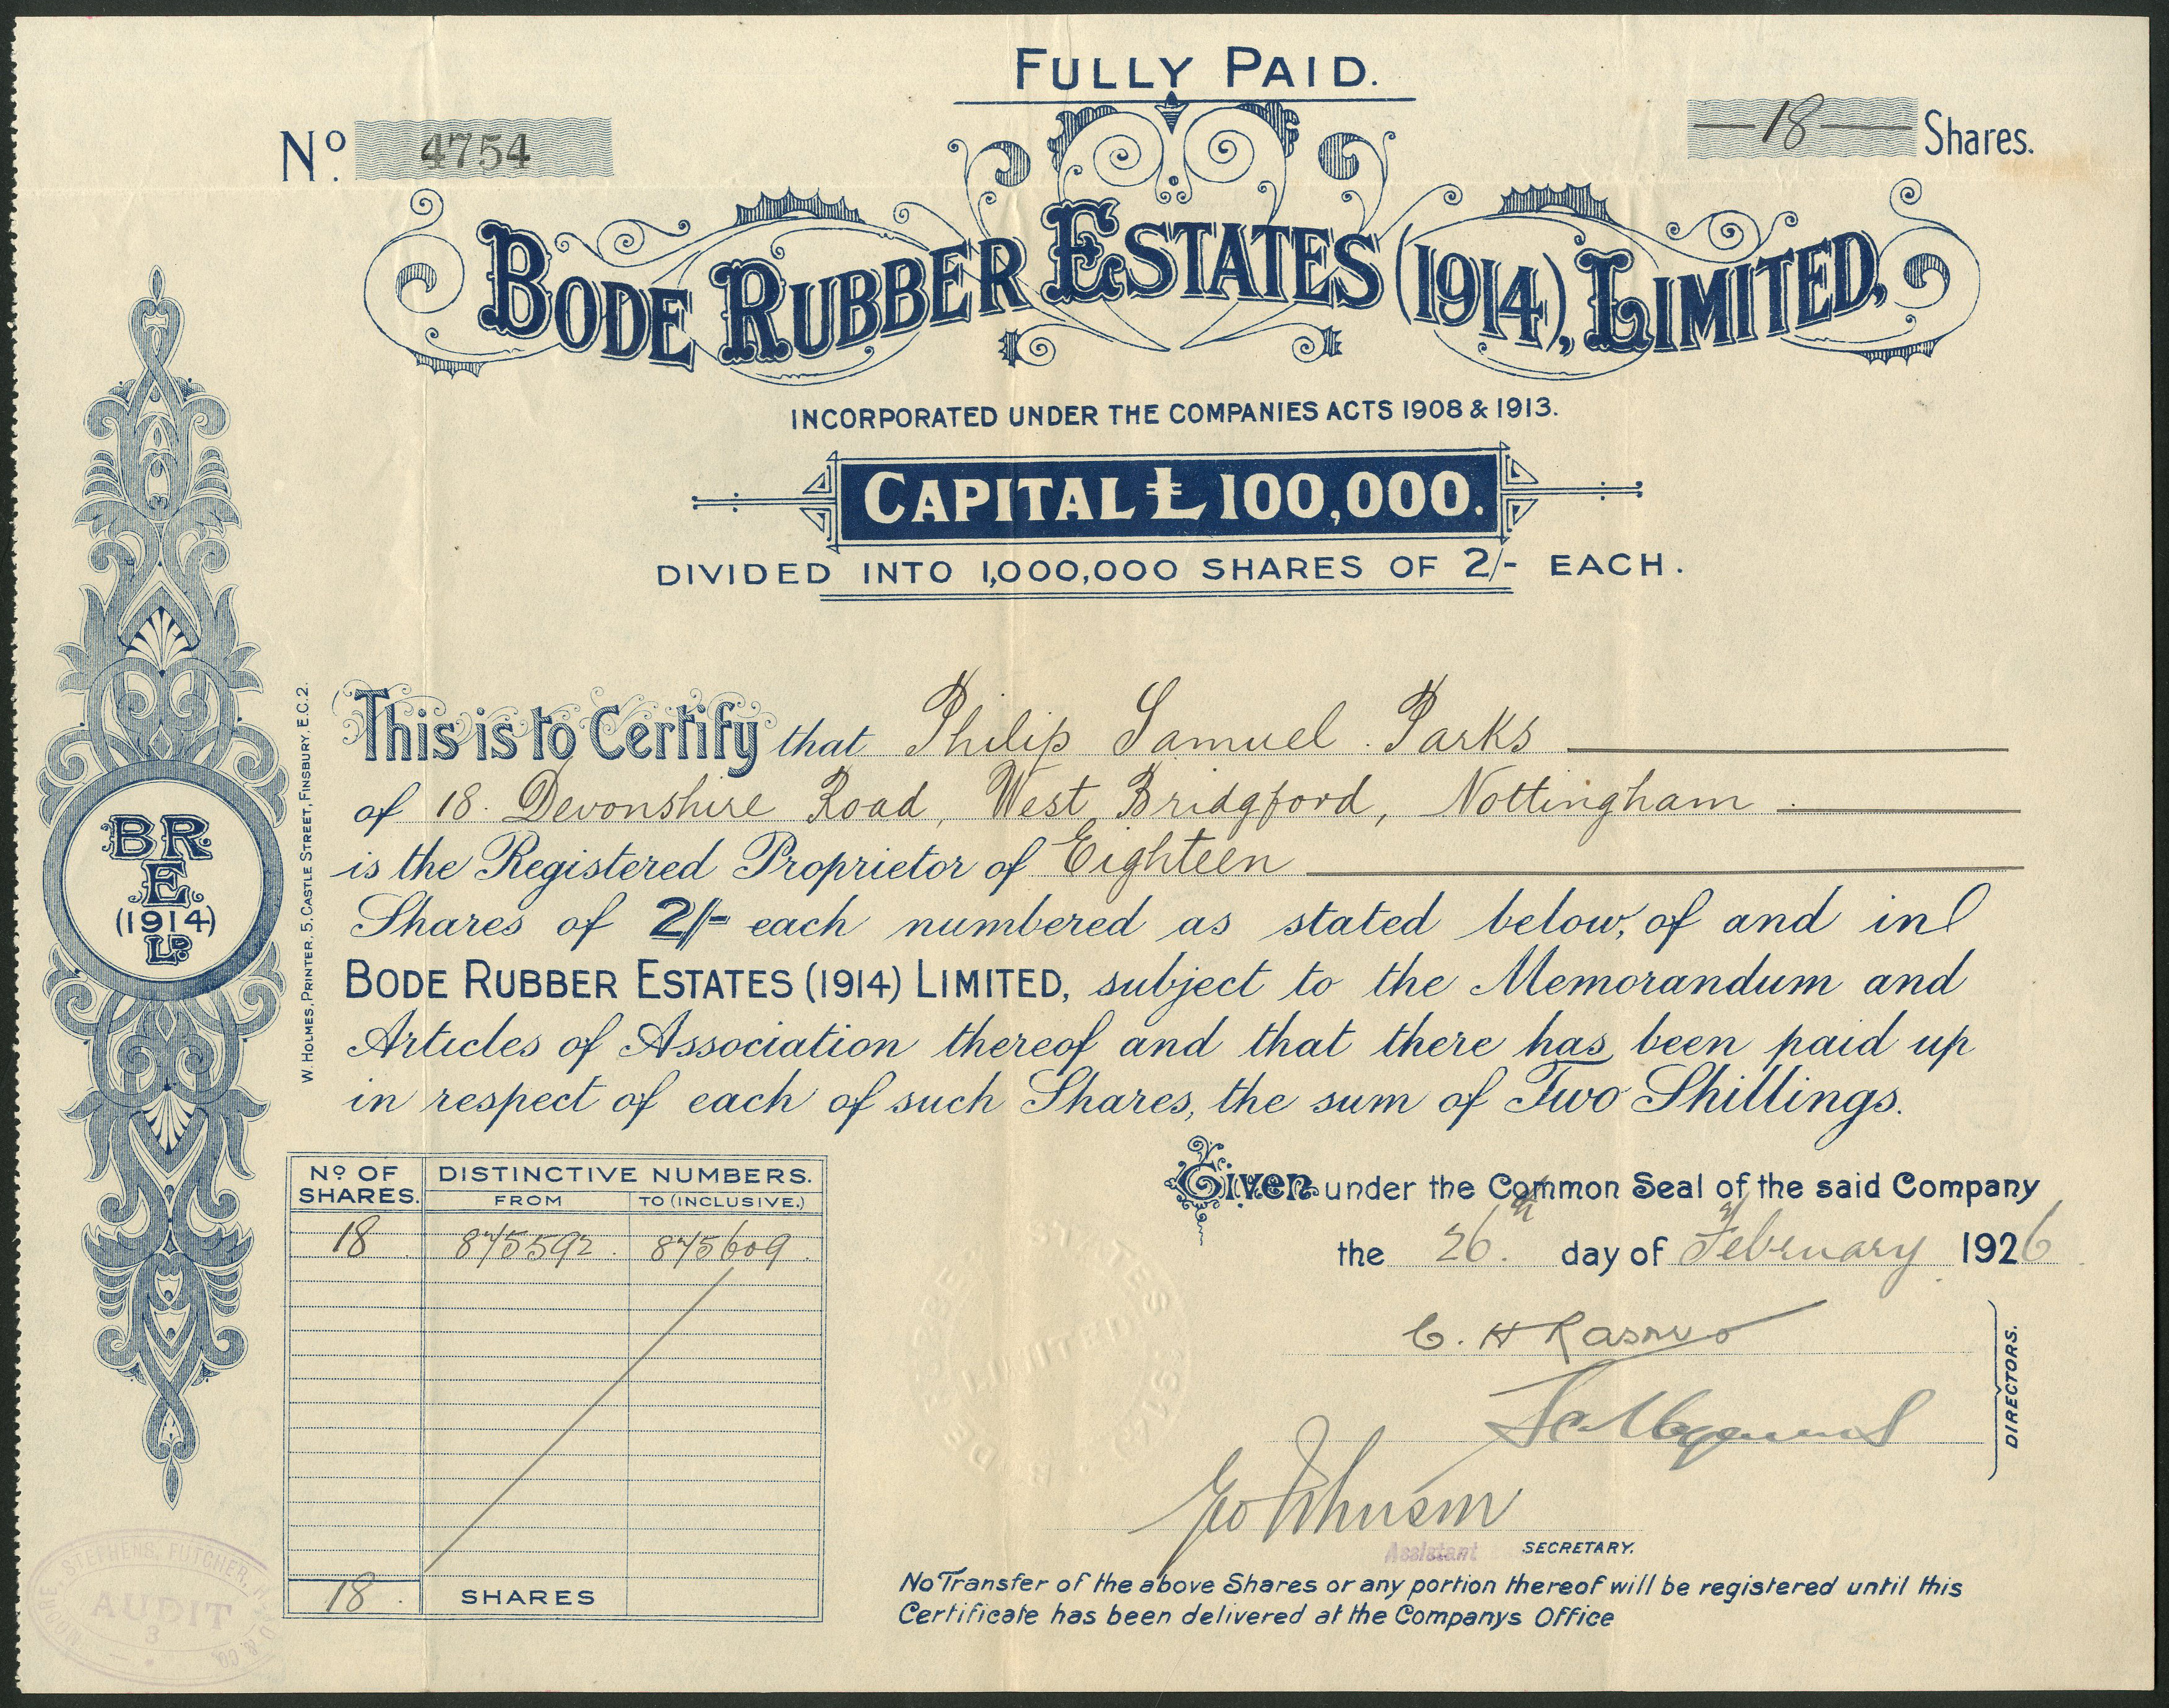 FULLY PAID.
No. 4754
—18— Shares.
BODE RUBBER ESTATES (1914), LIMITED,
INCORPORATED UNDER THE COMPANIES ACTS 1908 & 1913.
CAPITAL £100,000.
DIVIDED INTO 1,000,000 SHARES OF 2/- EACH.
This is to Certify that Philip Samuel Parks
of 18. Devonshire Road, West Bridgford, Nottingham
is the Registered Proprietor of Eighteen
Shares of 2/- each numbered as stated below, of and in
BODE RUBBER ESTATES (1914) LIMITED, subject to the Memorandum and
Articles of Association thereof and that there has been paid up
in respect of each of such Shares, the sum of Two Shillings.
BR
E.
(1914)
LD.
W. HOLMES, PRINTER. 5, CASTLE STREET, FINSBURY, E.C.2.
No OF SHARES. DISTINCTIVE NUMBERS.
FROM TO (INCLUSIVE.)
18 875592. 875609.
18. SHARES
Given under the Common Seal of the said Company
the 26th. day of February 1926
C. H.
DIRECTORS.
Geo Johnson
Assistant SECRETARY.
No Transfer of the above Shares or any portion thereof will be registered until this
Certificate has been delivered at the Companys Office
LIMITED
STEPHENS, FUTCHER,
AUDIT
3
& CO.